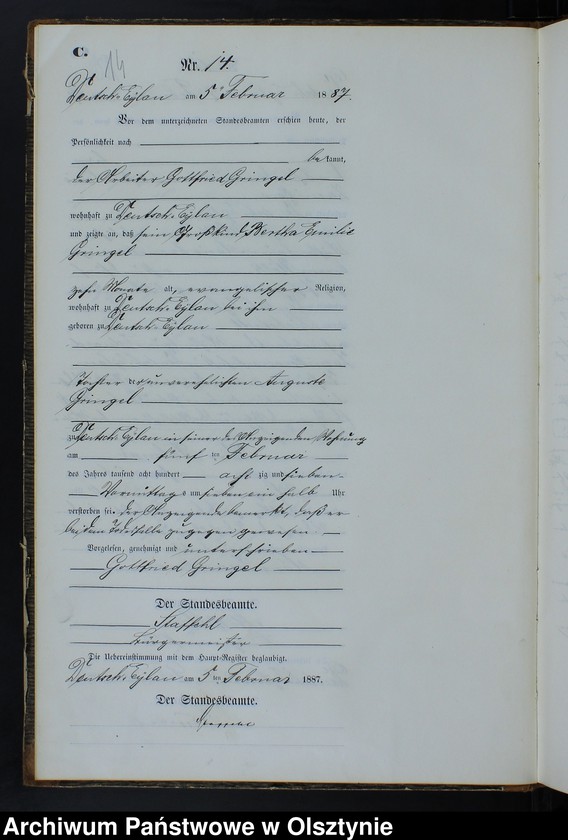 C.
14
Nr. 14.
Deutsch-Eylau am 5ten Februar 1887.
Vor dem unterzeichneten Standesbeamten erschien heute, der
Persönlichkeit nach
bekannt,
der Arbeiter Gottfried Gringel
wohnhaft zu Deutsch-Eylau
und zeigte an, daß sein Großkind Bertha Emilie
Gringel
zehn Monate alt, evangelischer Religion,
wohnhaft zu Deutsch-Eylau bei ihm
geboren zu Deutsch-Eylau
Tochter der unverehelichten Auguste
Gringel
zu Deutsch Eylau in seiner des Anzeigenden Wohnung
am fünften Februar
des Jahres tausend acht hundert achtzig und sieben
Vormittags um sieben ein halb Uhr
verstorben sei. der Anzeigende bemerkt, daß er
bei dem Todesfalle zugegen gewesen
Vorgelesen, genehmigt und unterschrieben
Gottfried Gringel
Der Standesbeamte.
Bürgermeister
Die Uebereinstimmung mit dem Haupt-Register beglaubigt.
Deutsch-Eylau am 5ten Februar 1887.
Der Standesbeamte.
Archiwum Państwowe w Olsztynie